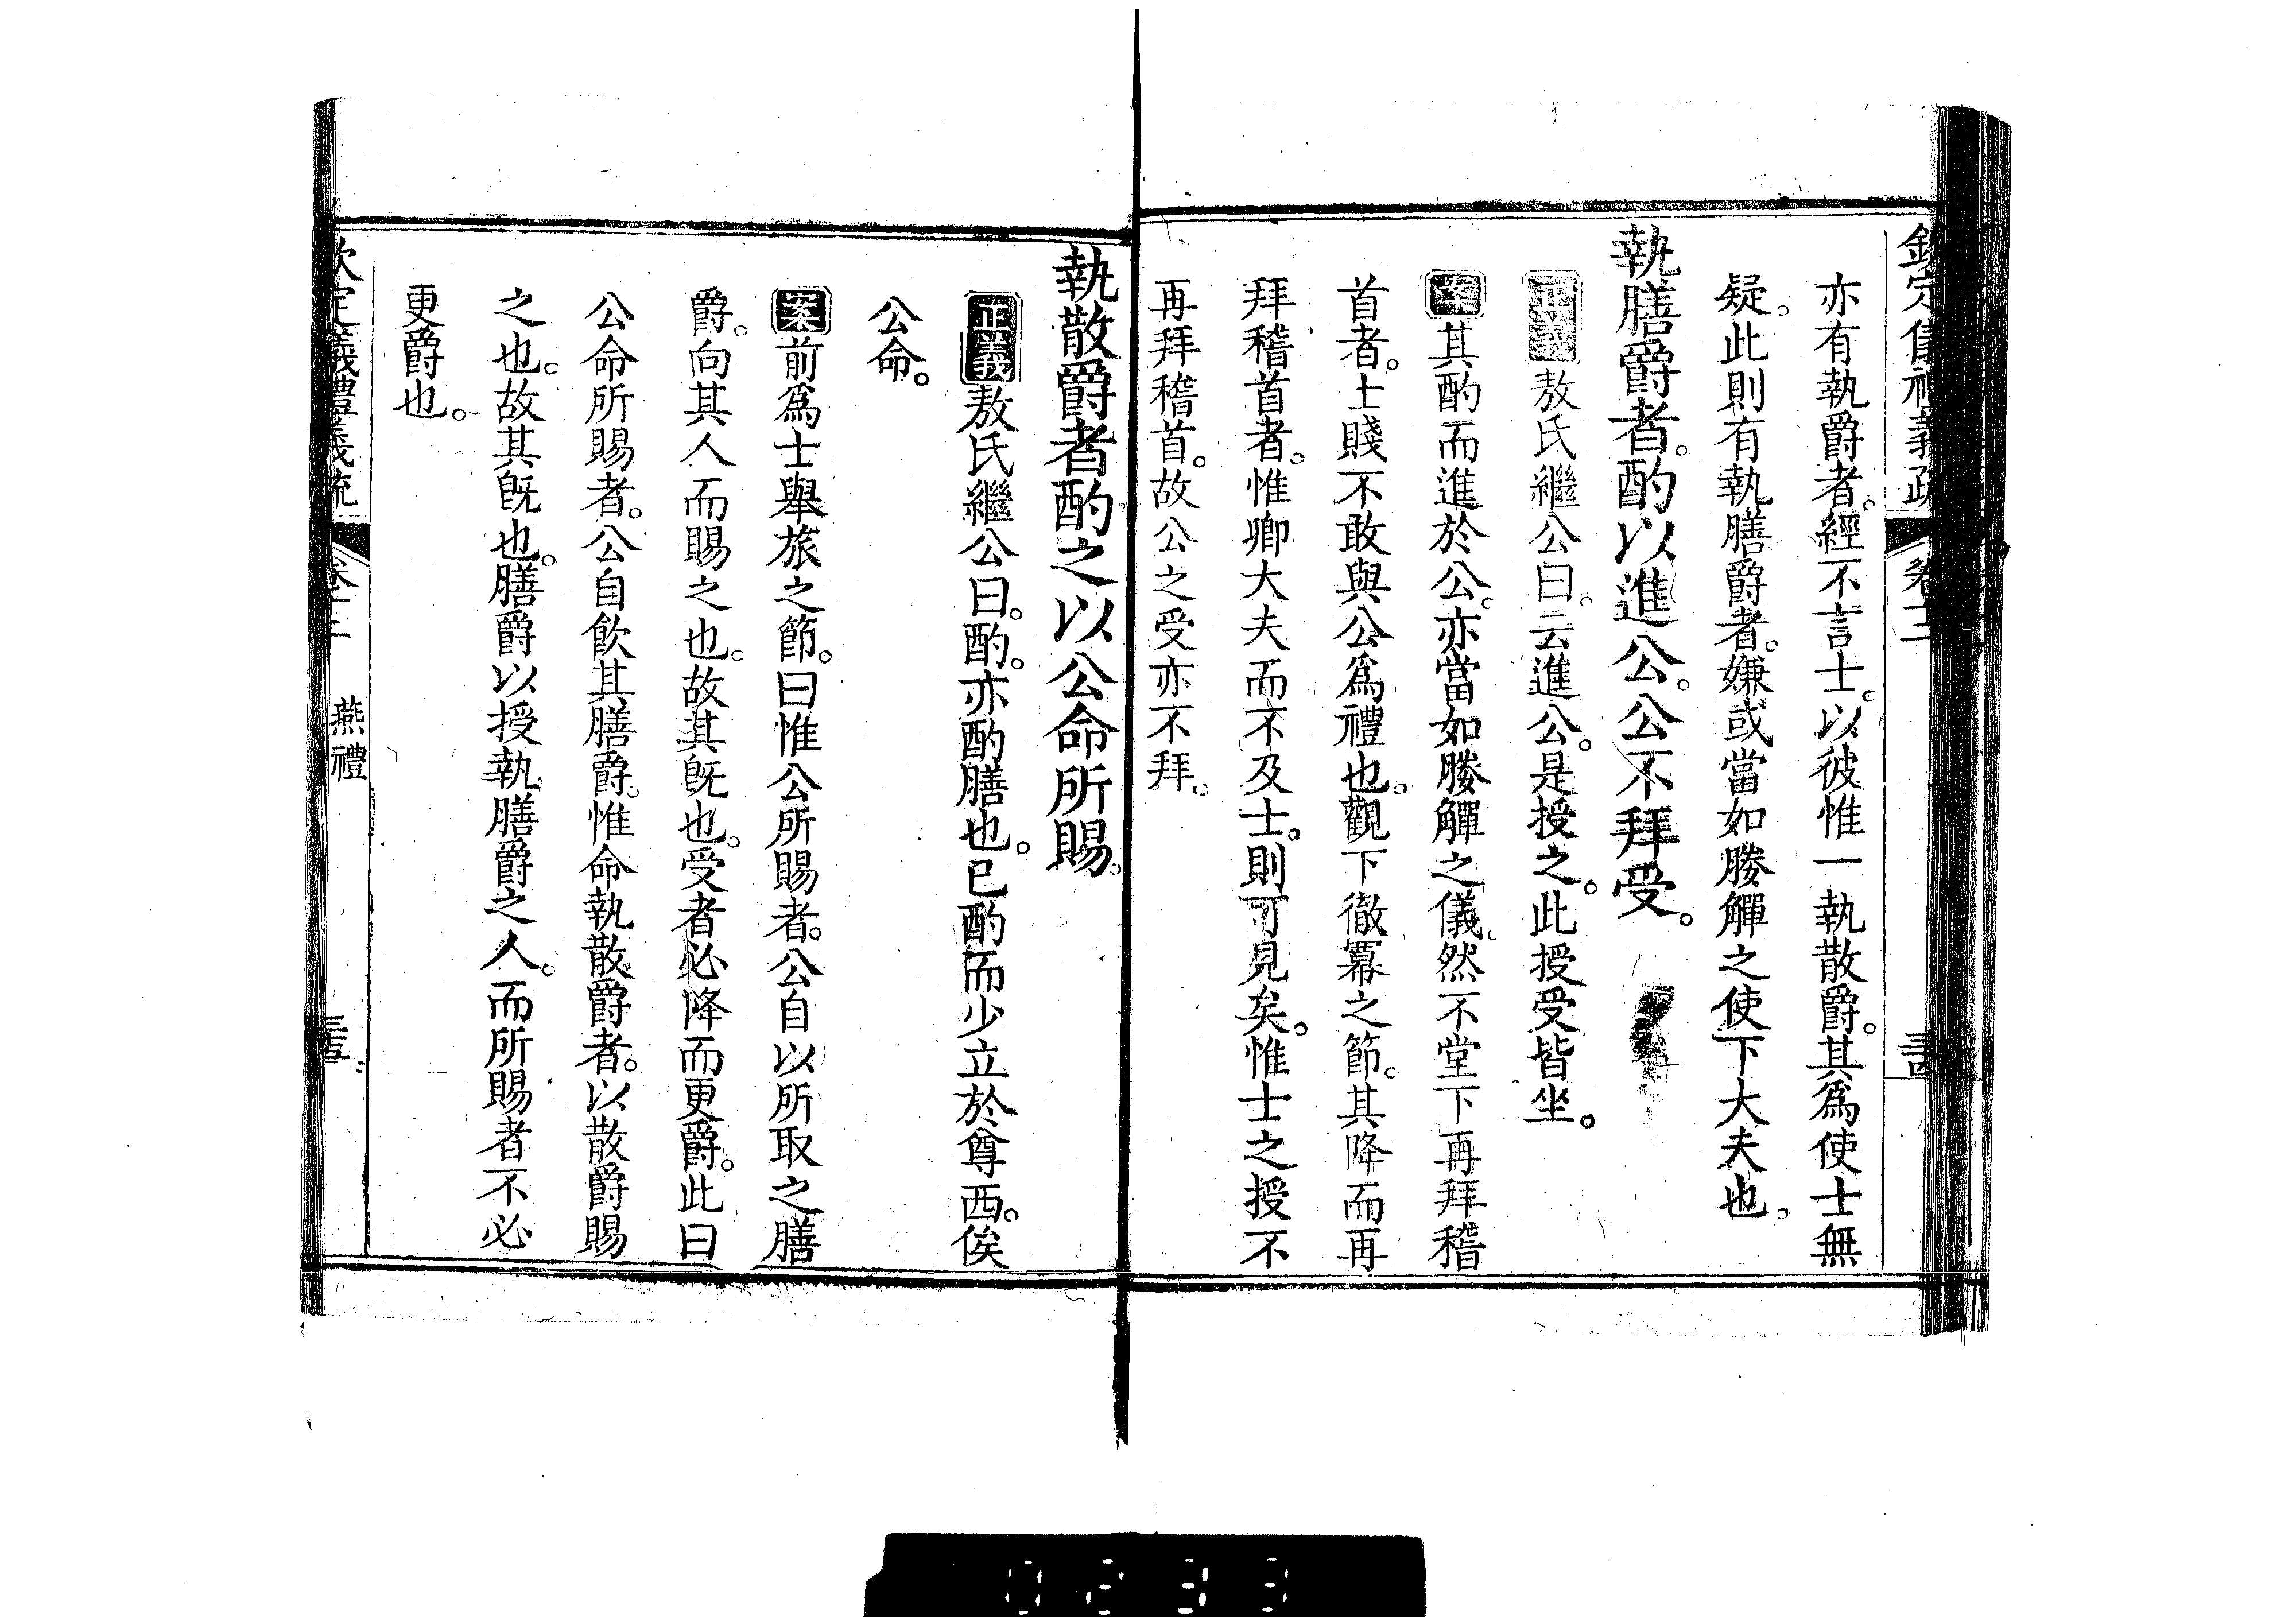 欽定儀禮義疏 卷十二
亦有執爵者。經不言士。以彼惟一執散爵。其爲使士無
疑。此則有執膳爵者。嫌或當如媵觶之使下大夫也。
執膳爵者。酌以進公。公不拜受。
正義敖氏繼公曰。云進公。是授之。此授受皆坐。
案其酌而進於公。亦當如媵觶之儀。然不堂下再拜稽
首者。士賤不敢與公爲禮也。觀下徹冪之節。其降而再
拜稽首者。惟卿大夫而不及士。則可見矣。惟士之授不
再拜稽首。故公之受亦不拜。
執散爵者酌之以公命所賜。
正義敖氏繼公曰。酌。亦酌膳也。已酌而少立於尊西。俟
公命。
案前爲士舉旅之節。曰惟公所賜者。公自以所取之膳
爵。向其人而賜之也。故其旣也。受者必降而更爵。此曰
公命所賜者。公自飲其膳爵。惟命執散爵者。以散爵賜
之也。故其旣也。膳爵以授執膳爵之人。而所賜者不必
更爵也。
欽定義禮義疏 卷十二 燕禮
0233